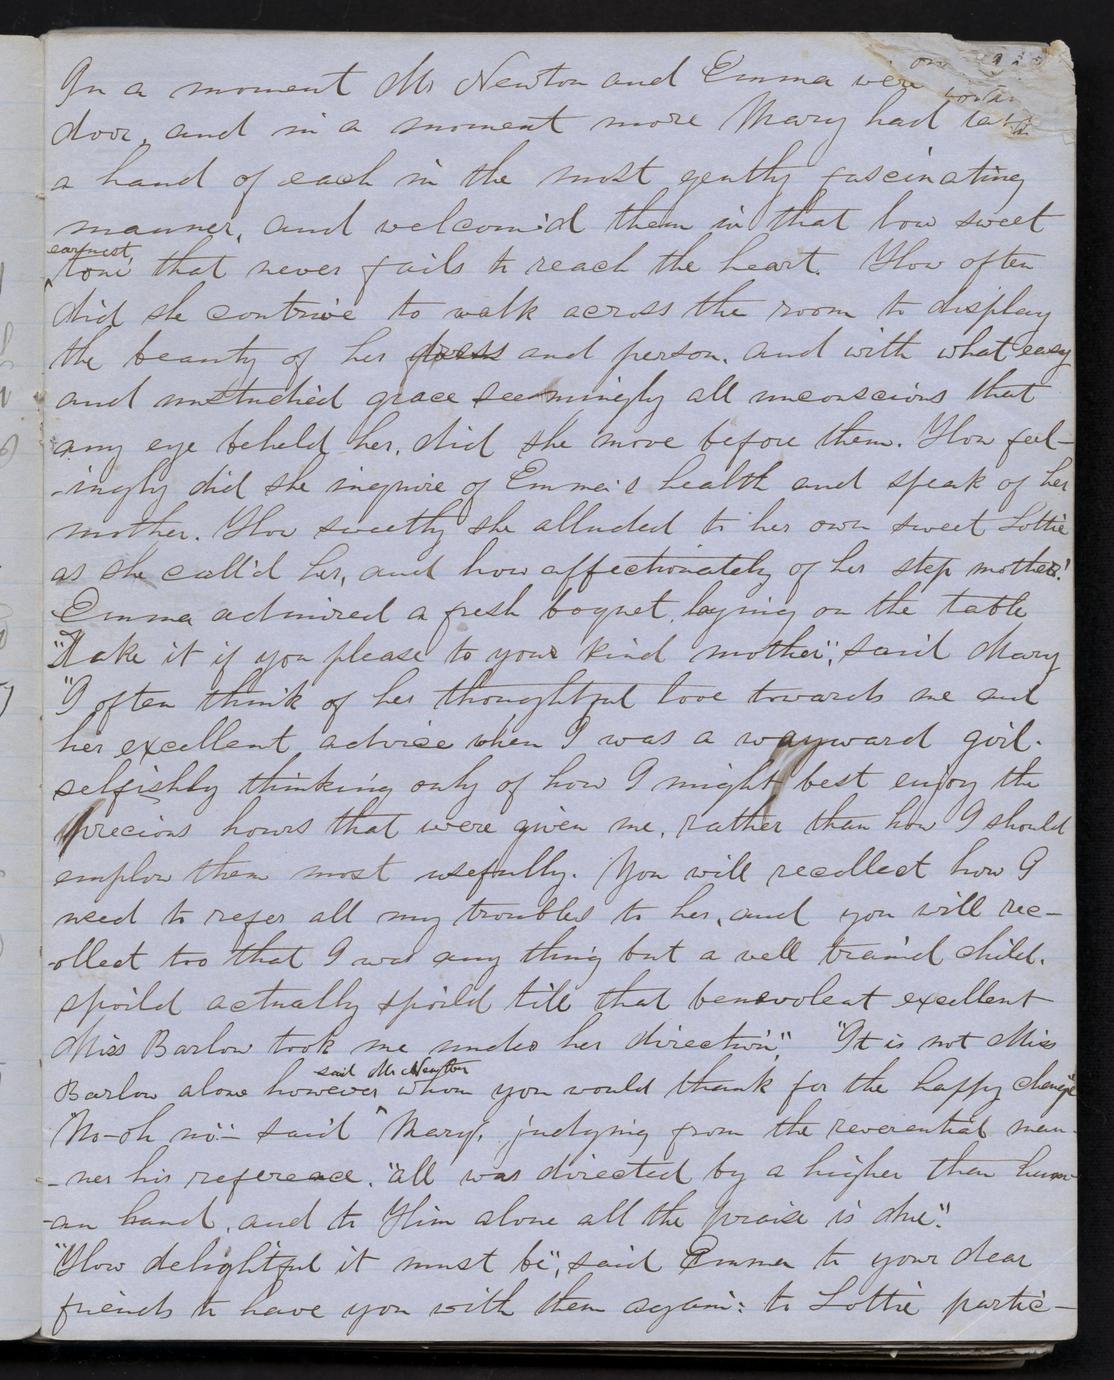 In a moment Mr Newton and Emma were
door, and in a moment more Mary had
a hand of each in the most gently fascinating
manner, and welcom'd them in that low sweet
earnest,
tone that never fails to reach the heart. How often
did she contrive to walk across the room to display
the beauty of her dress and person, and with what easy
and unstudied grace seemingly all unconscious that
any eye beheld her, did she move before them. How feel-
-ingly did she inquire of Emma's health and speak of her
mother. How sweetly she alluded to her own sweet Lottie
as she call'd her, and how affectionately of her step mother!
Emma admired a fresh boquet laying on the table
"Take it if you please to your kind mother", said Mary
"I often think of her thoughtful love towards me and
her excellent advice when I was a wayward girl.
selfishly thinking only of how I might best enjoy the
precious hours that were given me, rather than how I should
employ them most usefully. You will recollect how I
used to refer all my troubles to her, and you will rec-
-ollect too that I was any thing but a well train'd child.
spoild actually spoild till that benevolent excellent
Miss Barlow took me under her direction". "It is not Miss
said Mr Newton
Barlow alone however whom you would thank for the happy change"
"No-oh no"- said Mary, judging from the reverential man-
-ner his reference. "all was directed by a higher than hum-
-an hand, and to Him alone all the praise is due".
"How delightful it must be", said Emma to your dear
friends to have you with them again: to Lottie partic-